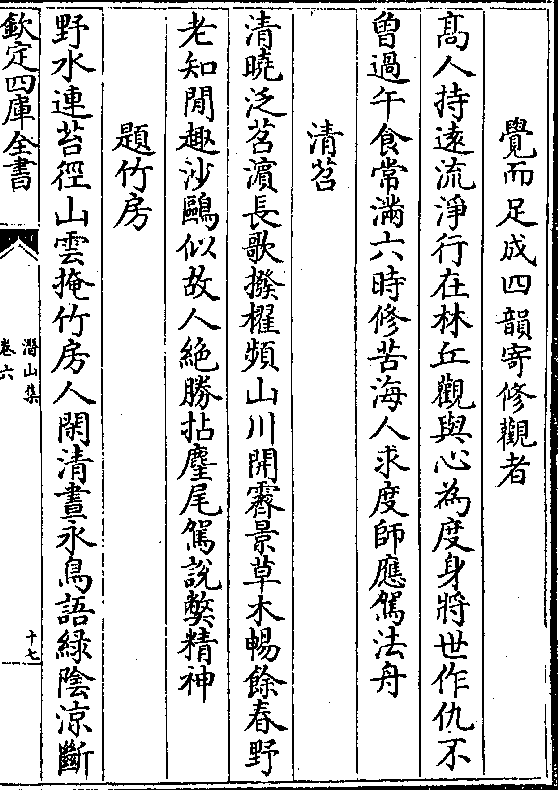 覺而足成四韻寄修觀者
髙人持遠流淨行在林丘觀與心為度身將世作仇不
曾過午食常滿六時修苦海人求度師應駕法舟
清苕
清曉泛苕濵長歌撥櫂頻山川開霽景草木暢餘春野
老知閒趣沙鷗似故人絶勝拈麈尾駕說獘精神
題竹房
野水連苔徑山雲掩竹房人閑清晝永鳥語緑陰凉斷
欽定四庫全書
潛山集
卷六
十七